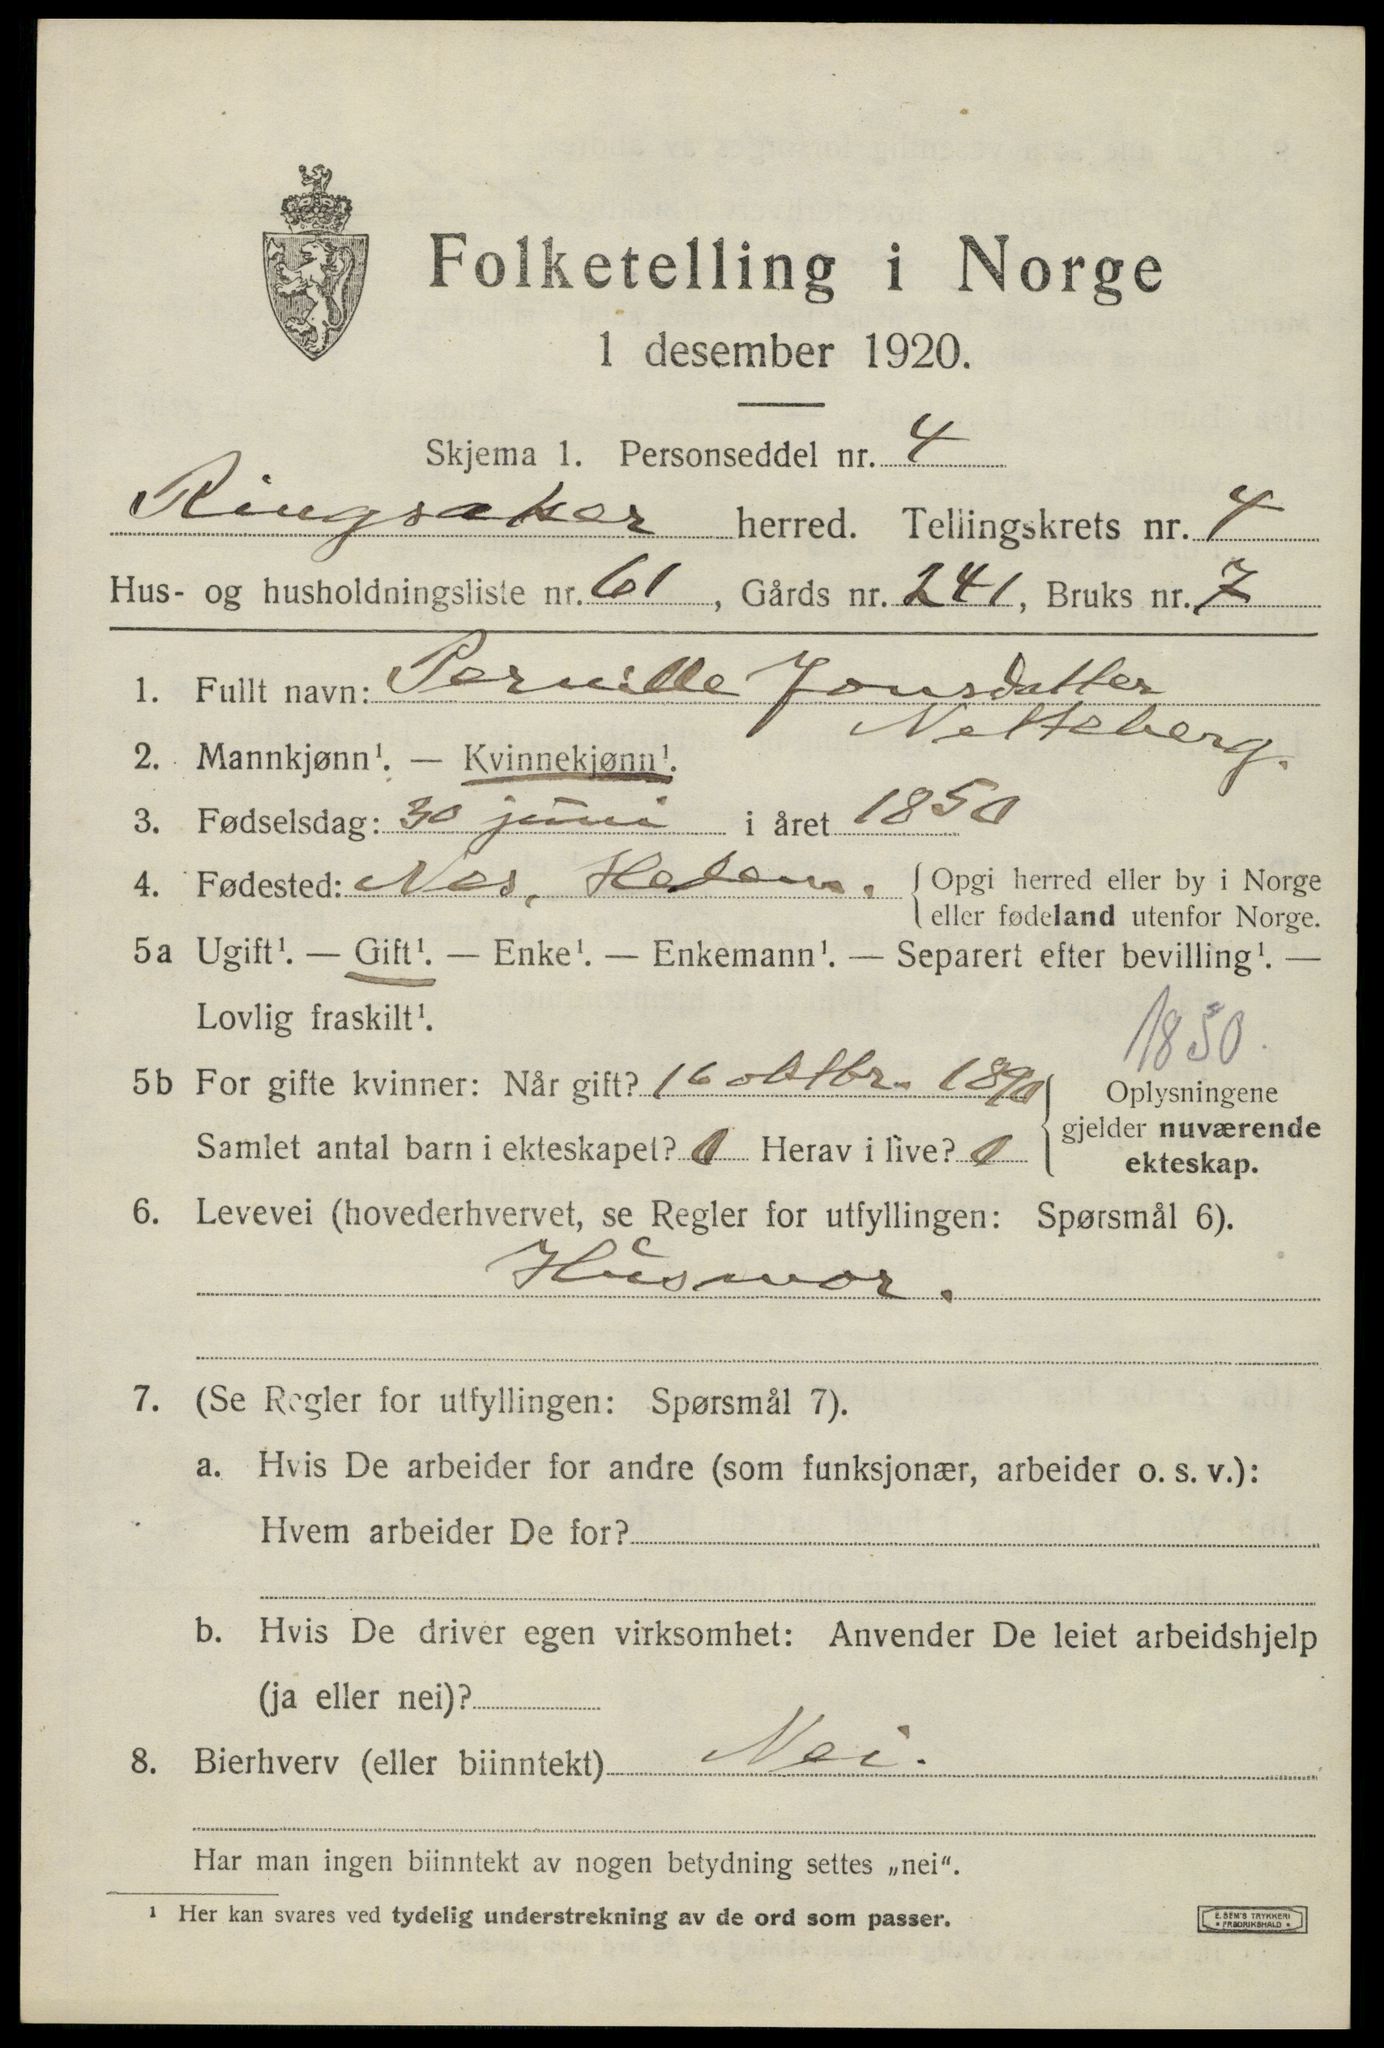 Folketelling i Norge
1 desember 1920.
Skjema 1. Personseddel nr. 4
Ringsaker herred. Tellingskrets nr. 4
Hus- og husholdningsliste nr. 61, Gårds nr. 241, Bruks nr. 7
1. Fullt navn: Pernille Jonsdatter
Netteberg.
2. Mannkjønn¹. — Kvinnekjønn¹.
3. Fødselsdag: 30 juni i året 1850
4. Fødested: Nes, Hedem. { Opgi herred eller by i Norge
eller fødeland utenfor Norge.
5a Ugift¹. — Gift¹. — Enke¹. — Enkemann¹. — Separert efter bevilling¹. —
Lovlig fraskilt¹.
1850.
5b For gifte kvinner: Når gift? 16 oktbr. 1890 { Oplysningene
gjelder nuværende
Samlet antal barn i ekteskapet? 0 Herav i live? 0
ekteskap.
6. Levevei (hovederhvervet, se Regler for utfyllingen: Spørsmål 6).
Husmor.
7. (Se Regler for utfyllingen: Spørsmål 7).
a. Hvis De arbeider for andre (som funksjonær, arbeider o. s. v.):
Hvem arbeider De for?
b. Hvis De driver egen virksomhet: Anvender De leiet arbeidshjelp
(ja eller nei)?
8. Bierhverv (eller biinntekt) Nei.
Har man ingen biinntekt av nogen betydning settes „nei“.
¹ Her kan svares ved tydelig understrekning av de ord som passer.
E. SEM'S TRYKKERI
* FREDRIKSHALD *